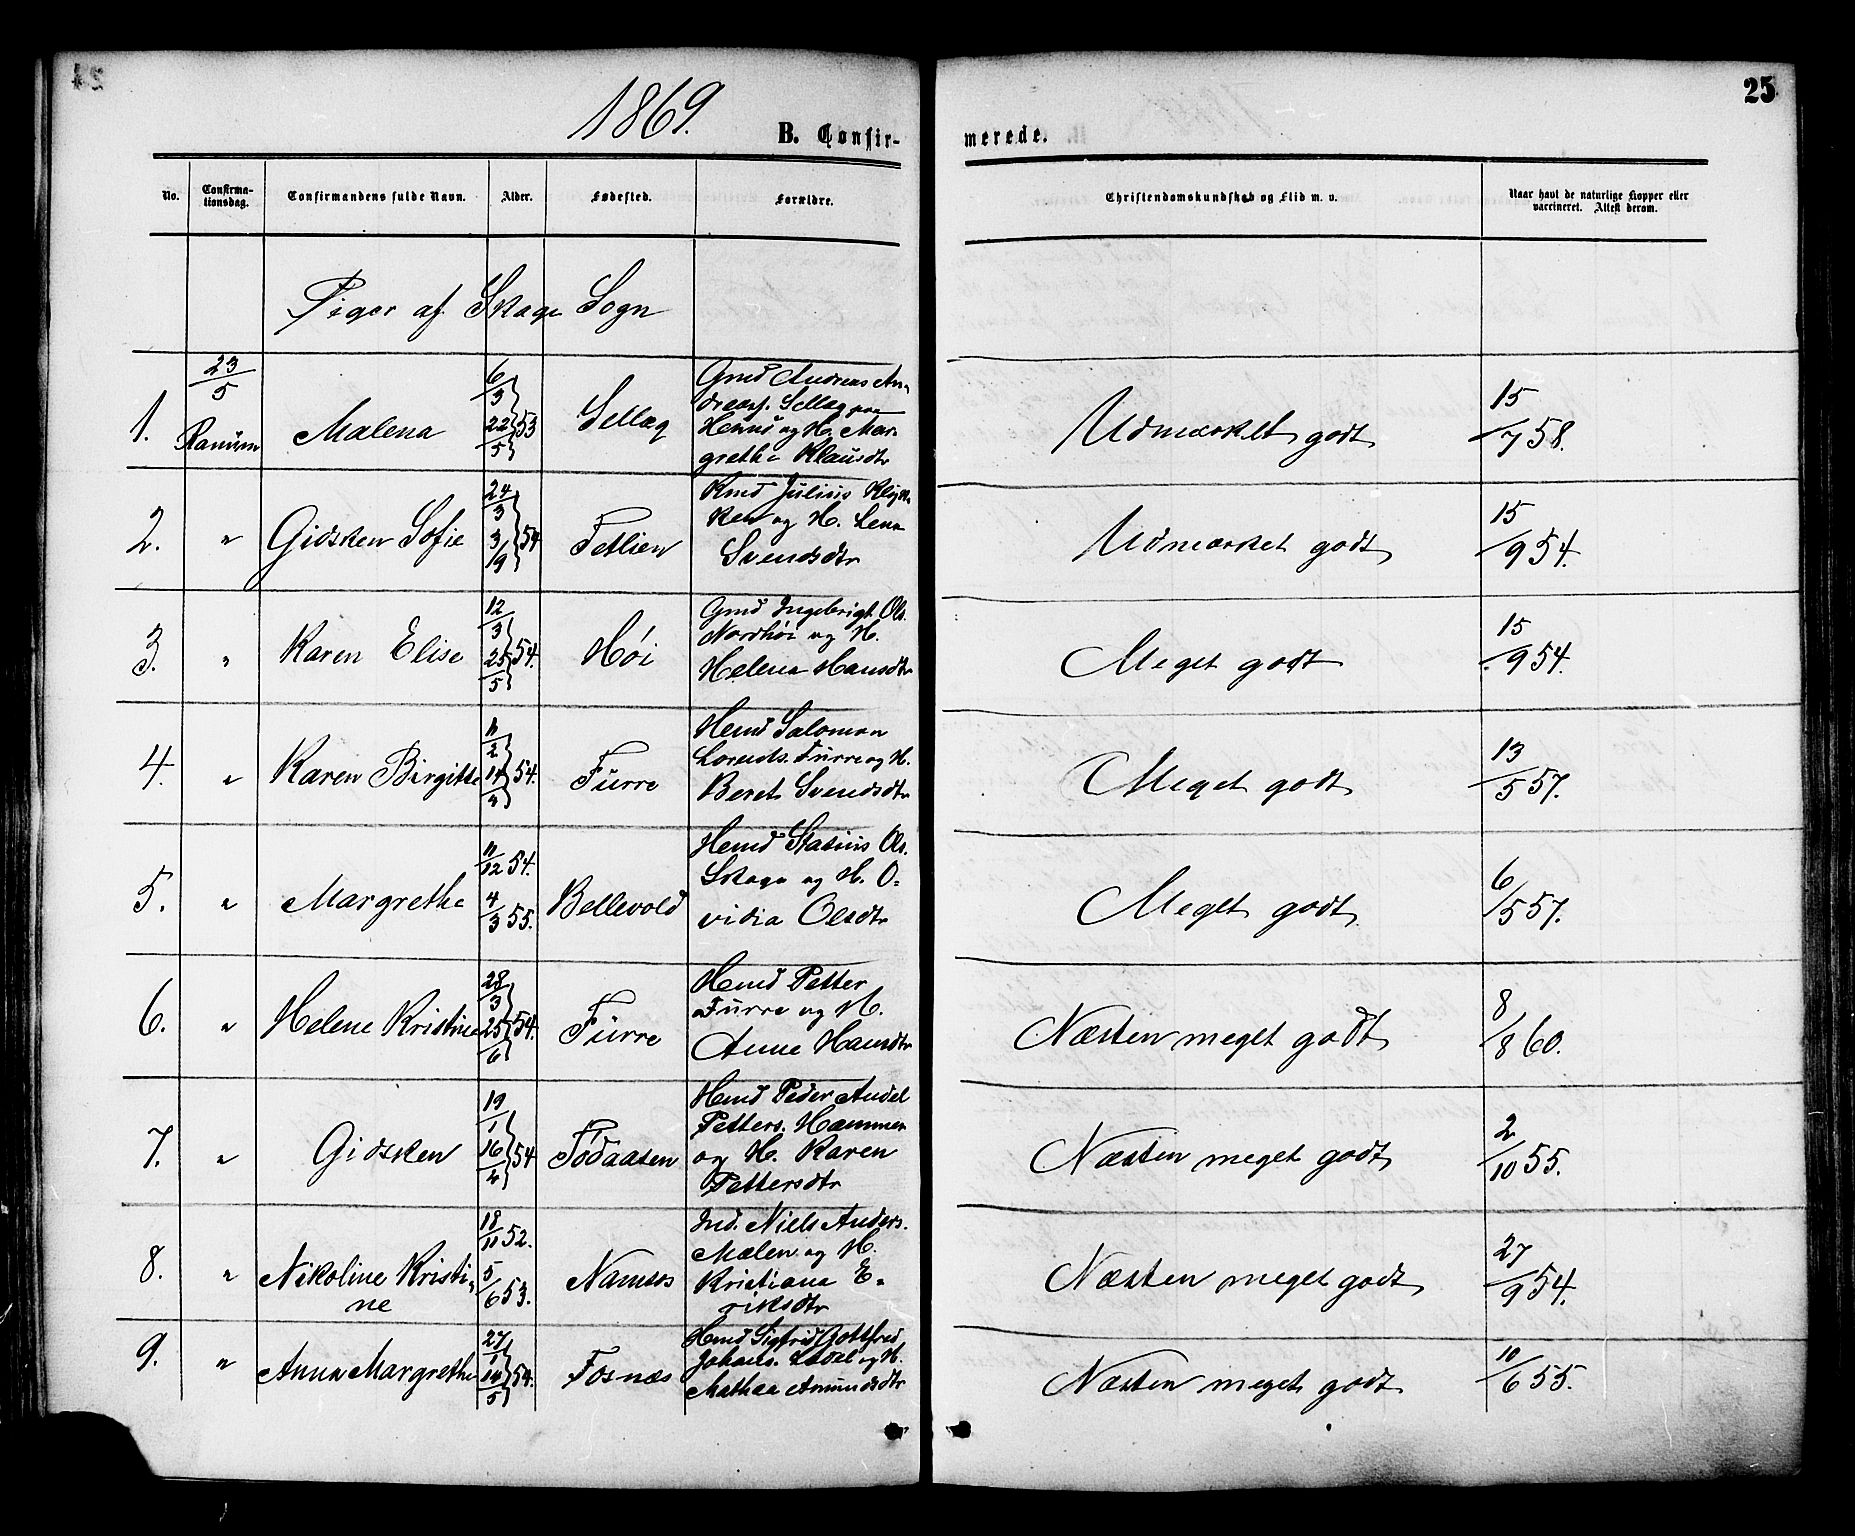 25
1869.
B. Confirmerede.
No.
Confirma-
tionsdag.
Confirmandens fulde Navn.
Alder.
Fødested.
Forældre.
Christendomskundskab og Flid m. v.
Naar havt de naturlige Kopper eller
vaccineret. Attest derom.
Piger af Skage Sogn
1. 23/5 Ranum Malena 6/3 22/5 53 Sellæg
Gmd Andreas An-
dreass. Sellæg
og H. Mar-
grethe Klausdtr
Udmærket godt 15/7 58.
2. " Gidsken Sofie 24/3 3/19 54 Fetlien
Kmd Julius Klyk-
ken og H. Lena
Svendsdtr
Udmærket godt 15/9 54.
3. " Karen Elise 12/3 25/5 54. Høi
Gmd Ingebrigt Ols.
Nordhøi og H.
Helena Hansdtr
Meget godt 15/9 54.
4. " Karen Birgitte 11/2 14/4 54. Furre
Hmd Salomon
Lorends. Furre og H.
Beret Svendsdtr
Meget godt 13/5 57.
5. " Margrethe 11/12 54. 4/3 55. Bellevold
Hmd Statius Ols.
Skage og H. O-
vidia Olsdtr
Meget godt 6/5 57.
6. " Helene Kristine 28/3 25/6 54. Furre
Hmd Petter
Furre og H.
Anne Hansdtr
Næsten meget godt 8/8 60.
7. " Gidsken 19/1 16/4 54 Fødaasen
Hmd Peder Andel
Petters. Hammer
og H. Karen
Pettersdtr
Næsten meget godt 2/10 55.
8. " Nikoline Kristi-
ne 18/11 52. 5/6 53. Namsos
Ind. Niels Anders.
Mælen og H.
Kristiana E-
riksdtr
Næsten meget godt 27/9 54.
9. " Anna Margrethe 27/1 14/5 54. Fosnæs
Hmd Sigfrid Gottfred
Johaels. og H.
Mathea Amundsdtr
Næsten meget godt 10/6 55.